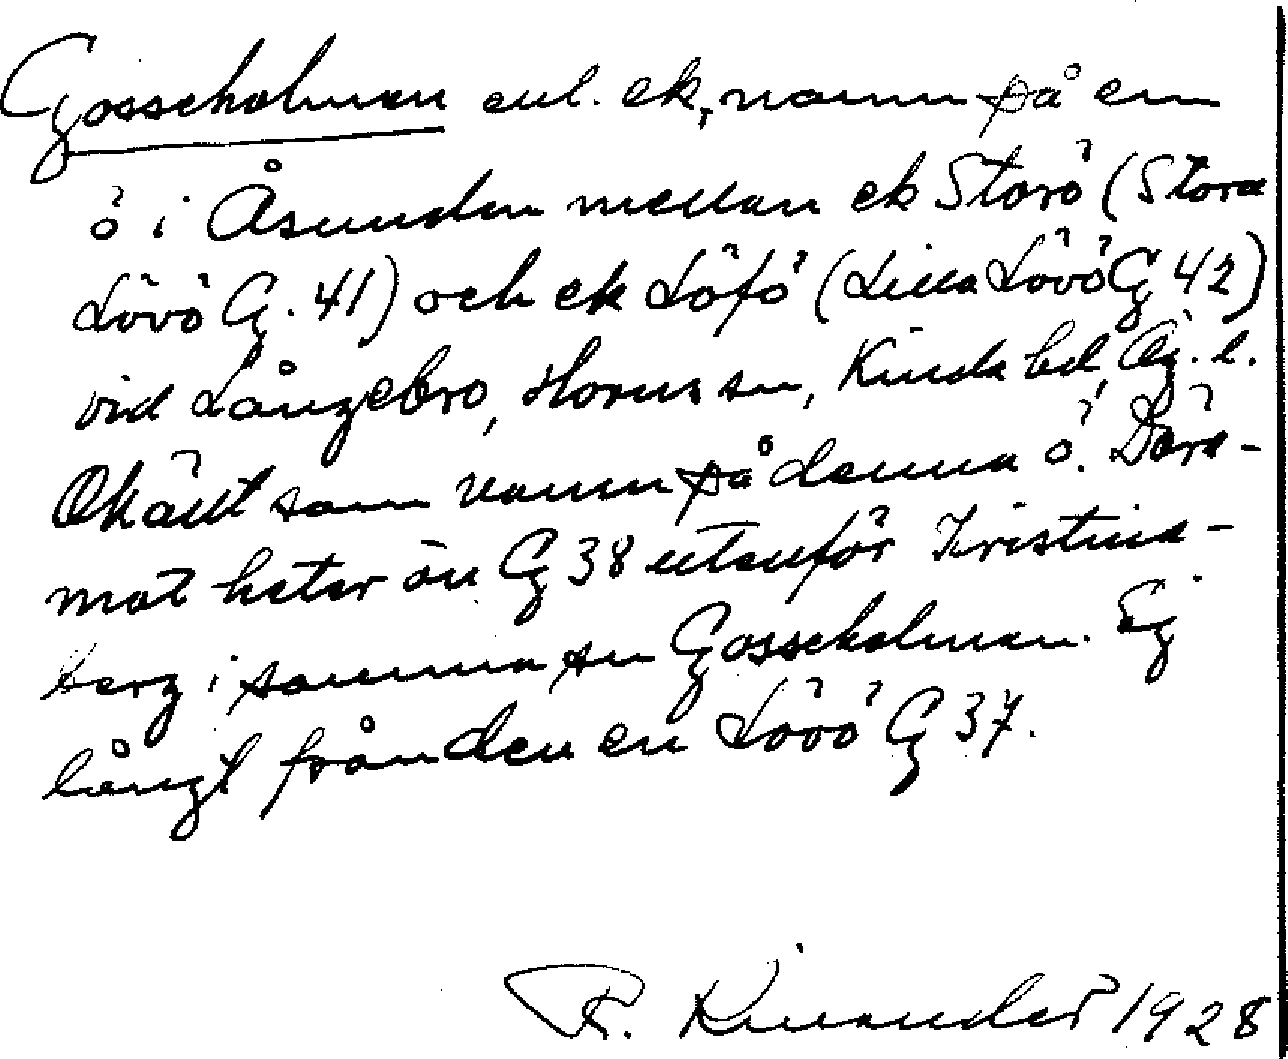 Gosseholmen enl. ek, namn på en
ö i Åsunden mellan ek Storö (Stora
Lövö G. 41) och ek Löfö (Lilla Lövö G 42)
vid Långebro, Horns sn, Kinda hd, Ög. l.
Okänt som namn på denna ö. Däre-
mot heter ön G 38 utanför Kristine-
berg i samma sn Gosseholmen. Ej
långt från den en Lövö G 37.
R. Kinander 1928